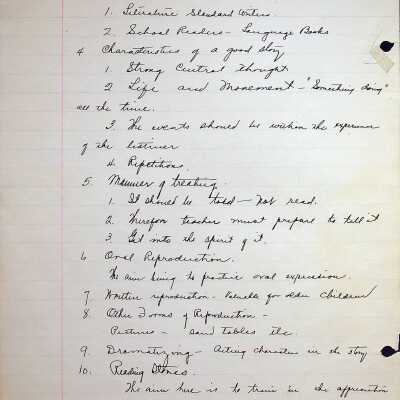 1. Literature Standard Writers.
2. School Readers - Language Books
4 Characteristics of a good story
1. Strong Central thought.
2 Life and Movement - "Something doing"
all the time.
3. The events should be within the experience
of the listener
4. Repetitions.
5. Manner of treating.
1. It should be told - not read.
2. Therefore teacher must prepare to tell it
3. Get into the spirit of it.
6 Oral Reproduction.
The aim being to practice oral expression.
7 Written reproduction - Valuable for older children
8 Other Forms of Reproduction -
Pictures - sand tables etc.
9. Dramatizing - Acting characters in the story
10. Reading Stories.
The aim here is to train in the appreciation